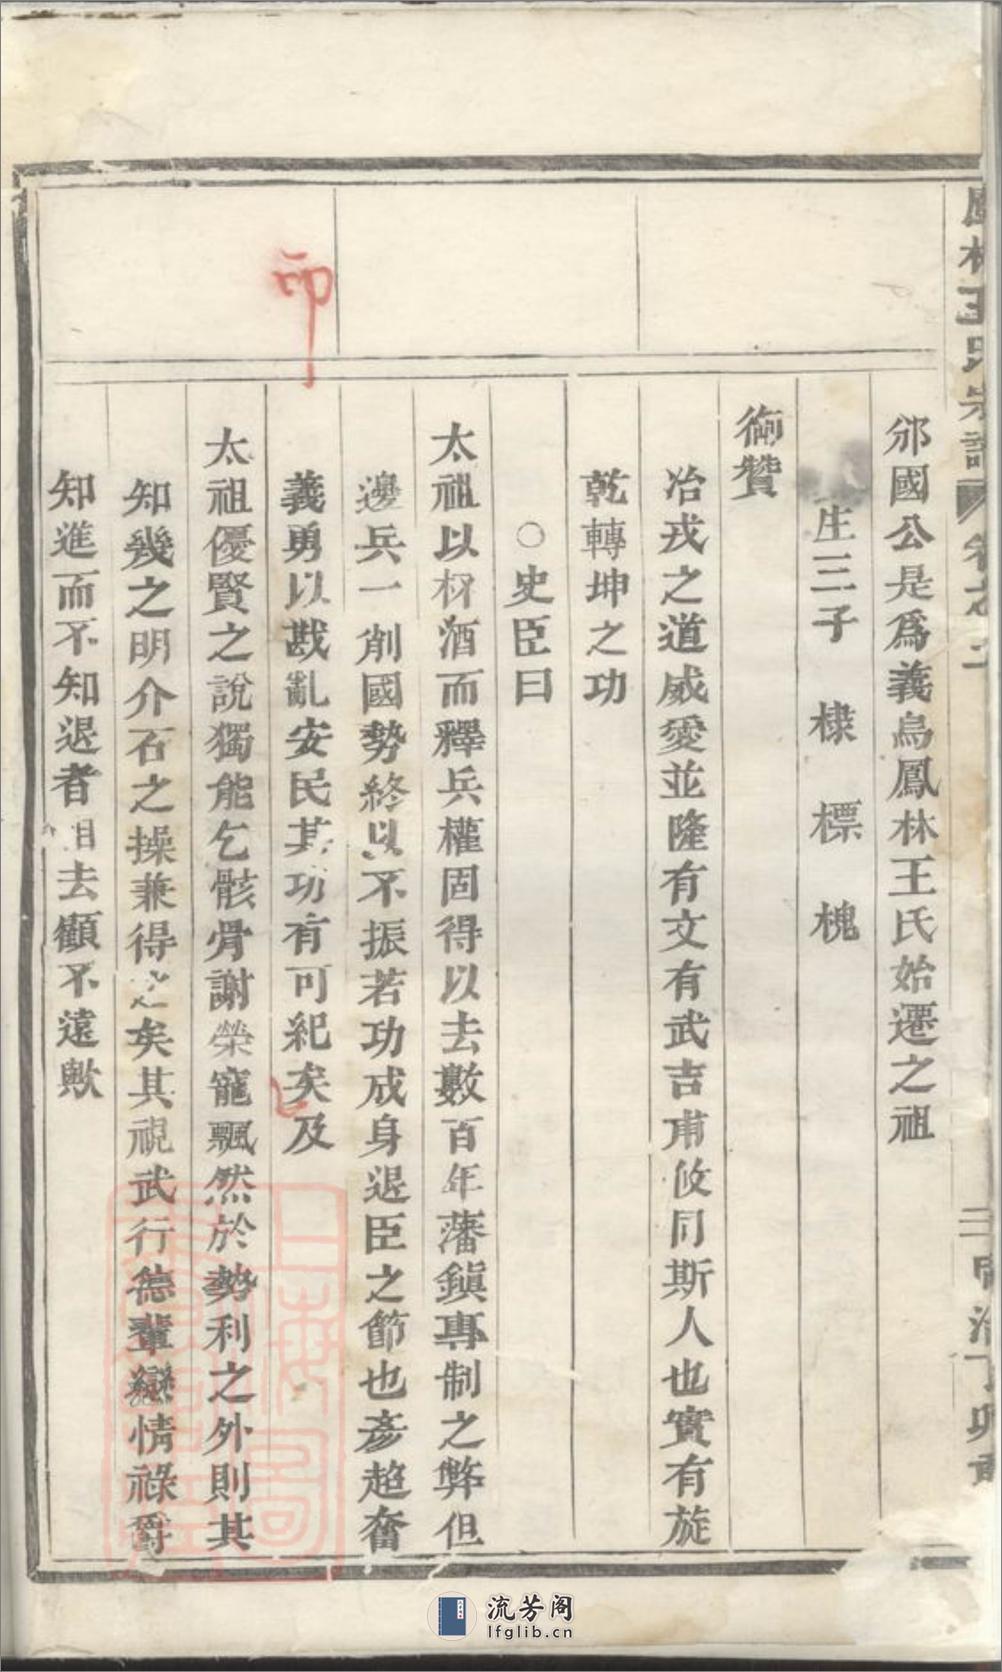 鳳林王氏宗譜 卷之二
三 同治丁卯重
邠國公是爲義烏鳳林王氏始遷之祖
生三子 棣 標 槐
御贊
冶戎之道威愛並隆有文有武吉甫攸同斯人也實有旋
乾轉坤之功
○史臣曰
太祖以杯酒而釋兵權固得以去數百年藩鎮專制之弊但
邊兵一削國勢終以不振若功成身退臣之節也彥超奮
義勇以戡亂安民其功有可紀矣及
太祖優賢之說獨能乞骸骨謝榮寵飄然於勢利之外則其
知幾之明介石之操兼得之矣其視武行德輩戀情祿爵
知進而不知退者相去顧不遠歟
印
流芳阁
lfglib.cn